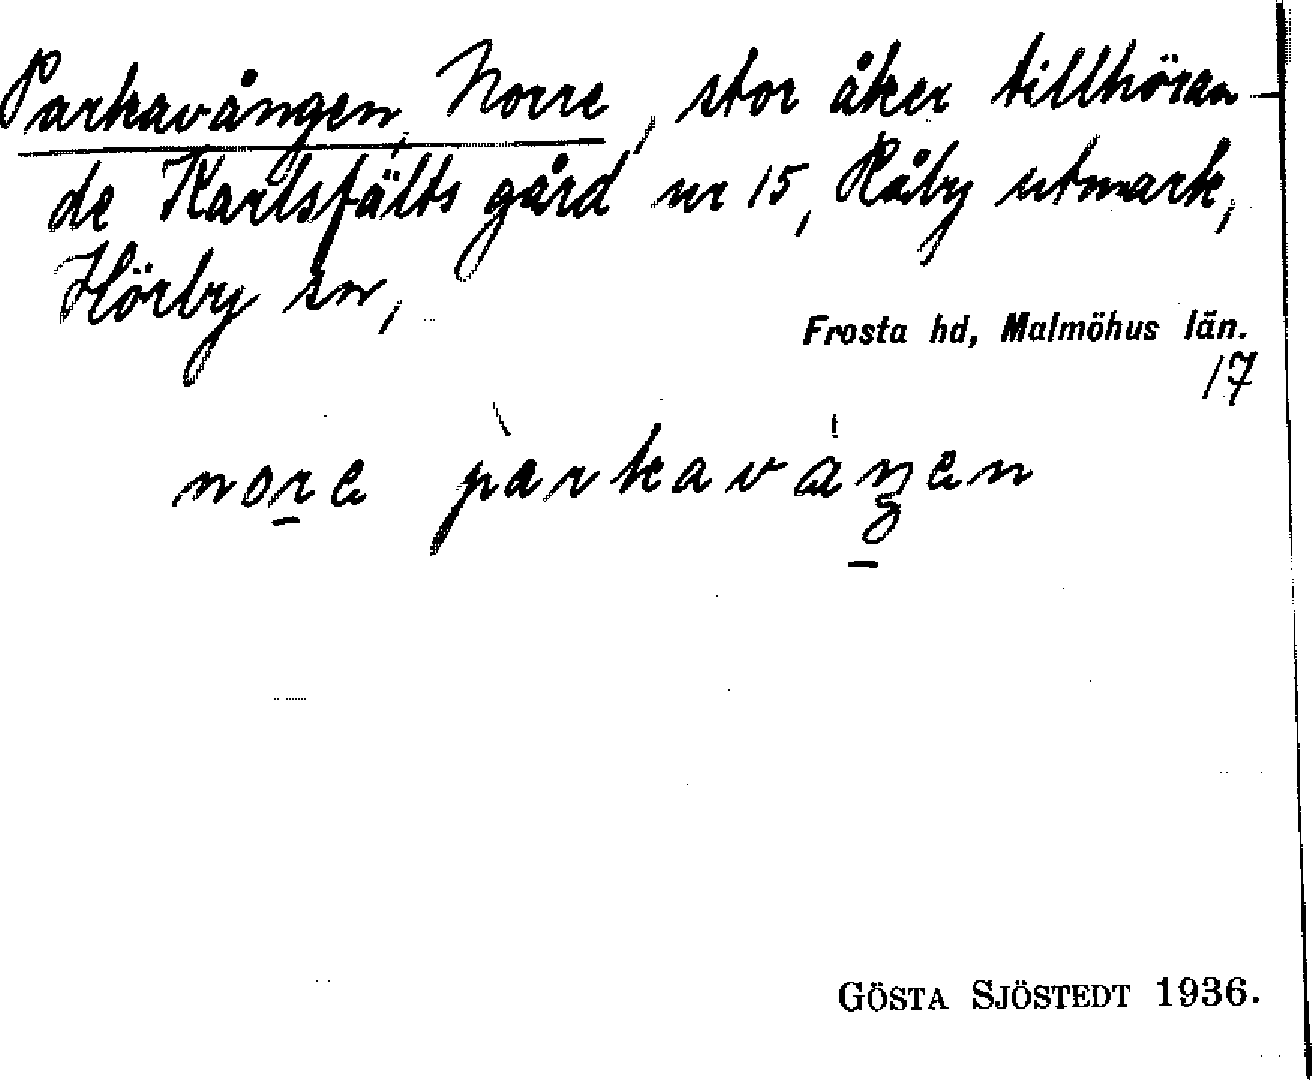 Parkavången, Norre, stor åker tillhöran-
de Karlsfälts gård nr 15, Råby utmark,
Hörby sn,
Frosta hd, Malmöhus län.
17
nore parkavåŋen
GÖSTA SJÖSTEDT 1936.